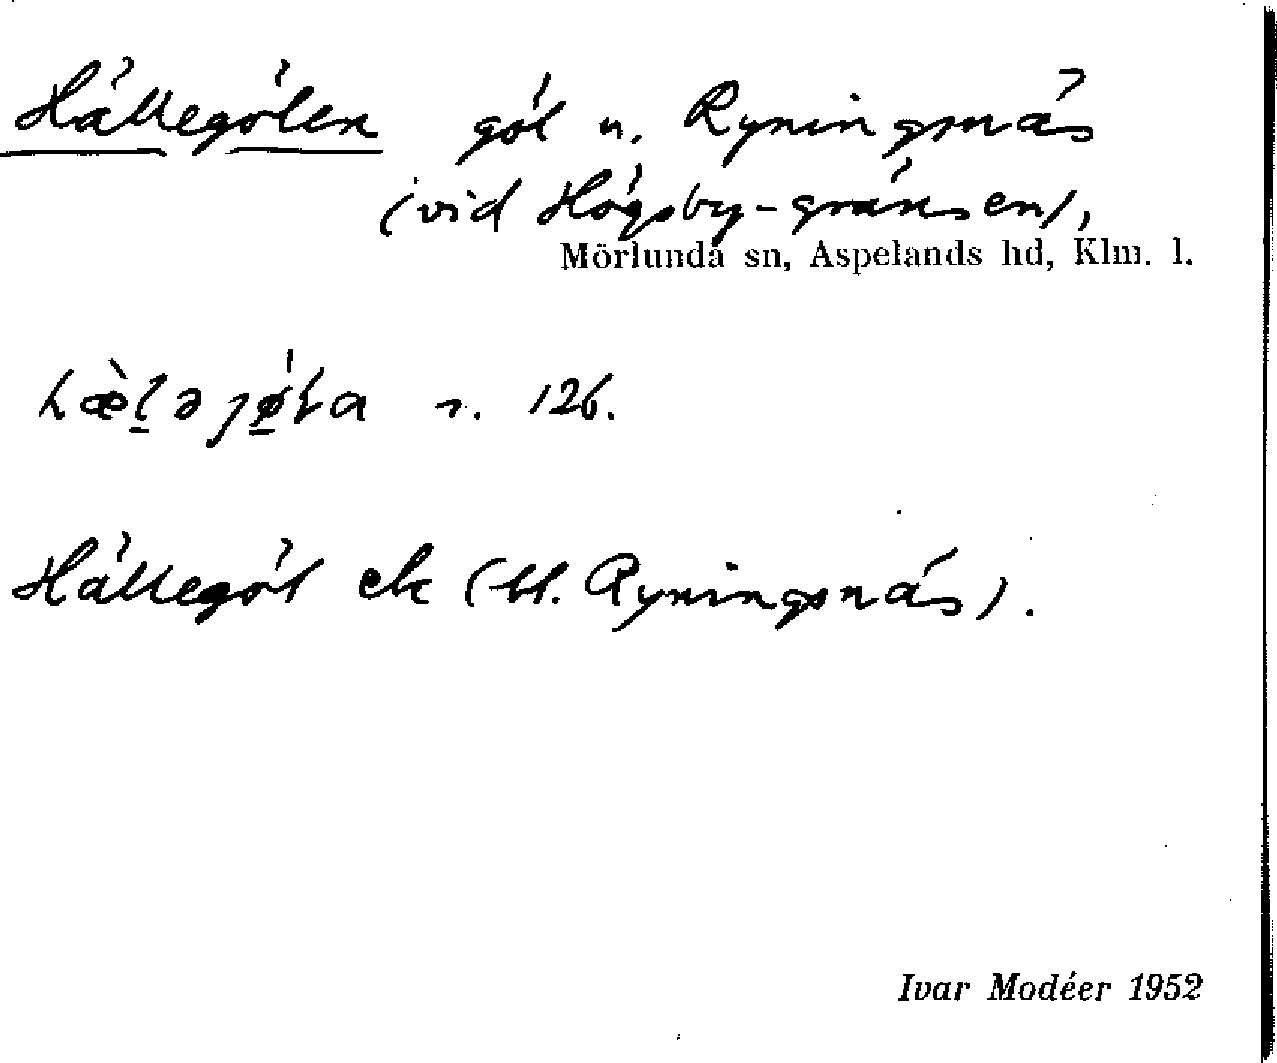 Hällegölen göl u. Ryningsnäs
(vid Högsby-gränsen),
Mörlunda sn, Aspelands hd, Klm. l.
n. 126.
Hällegöl ek (bl. Ryningsnäs).
Ivar Modéer 1952